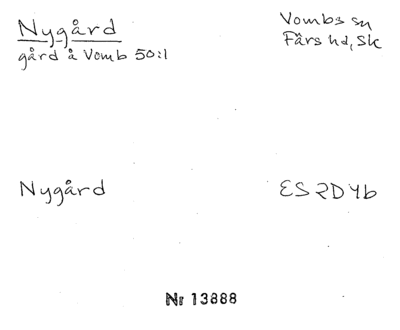 Nygård
gård å Vomb 50:1
Vombs sn
Färs hd, Sk
Nygård
ES 2D 4b
Nr 13888